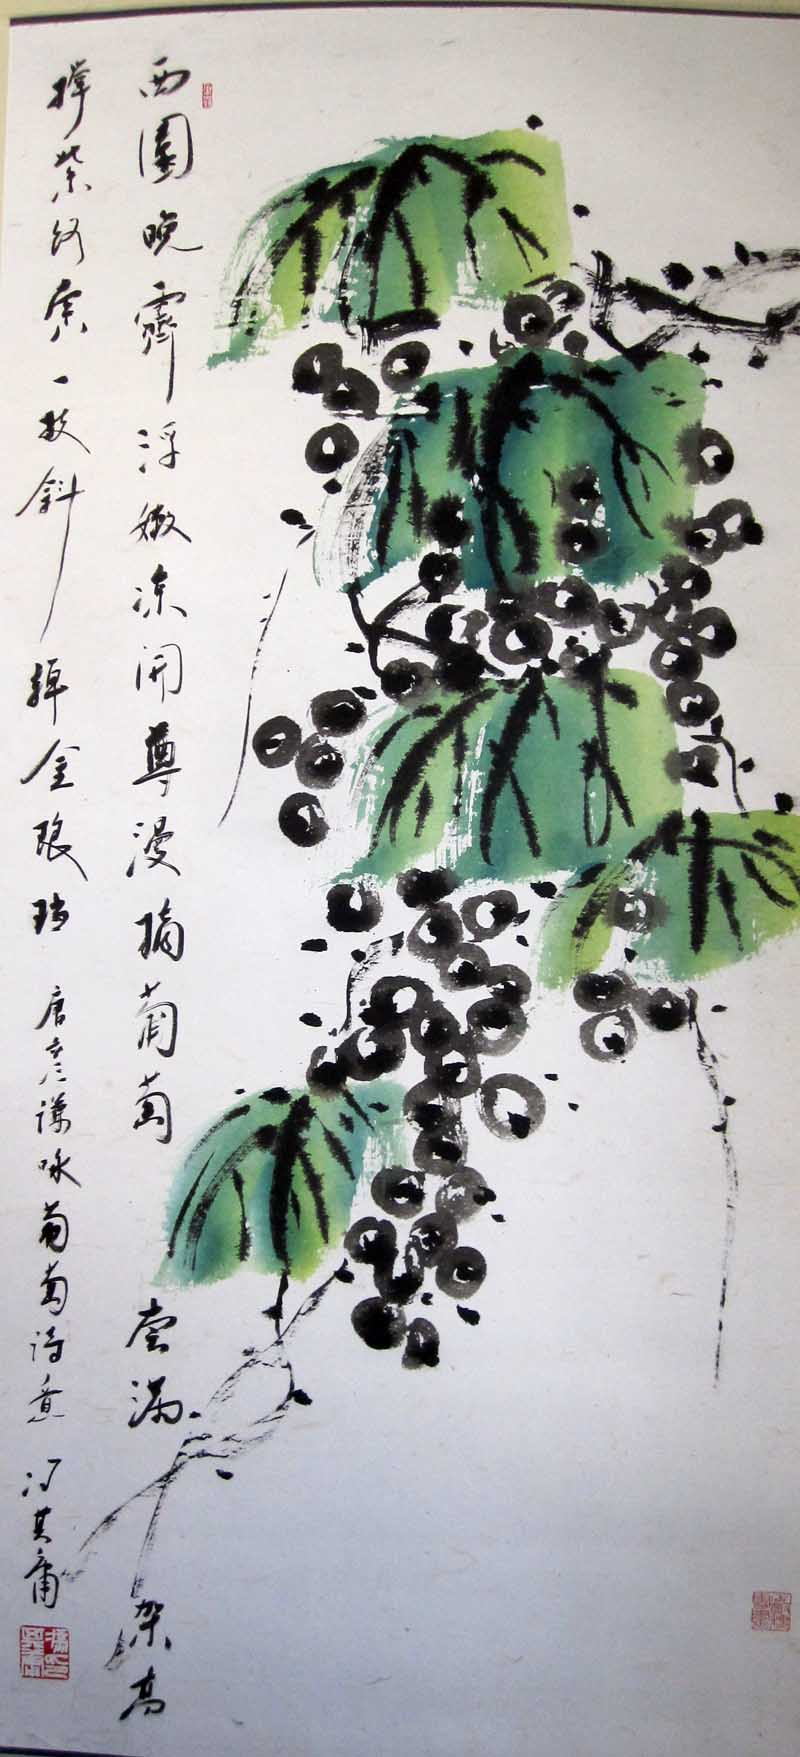 西園晚霽浮嫩涼開尊漫摘葡萄嘗滿架高
撑紫絡索一枝斜嚲金琅璫唐彥謙咏葡萄詩意馮其庸